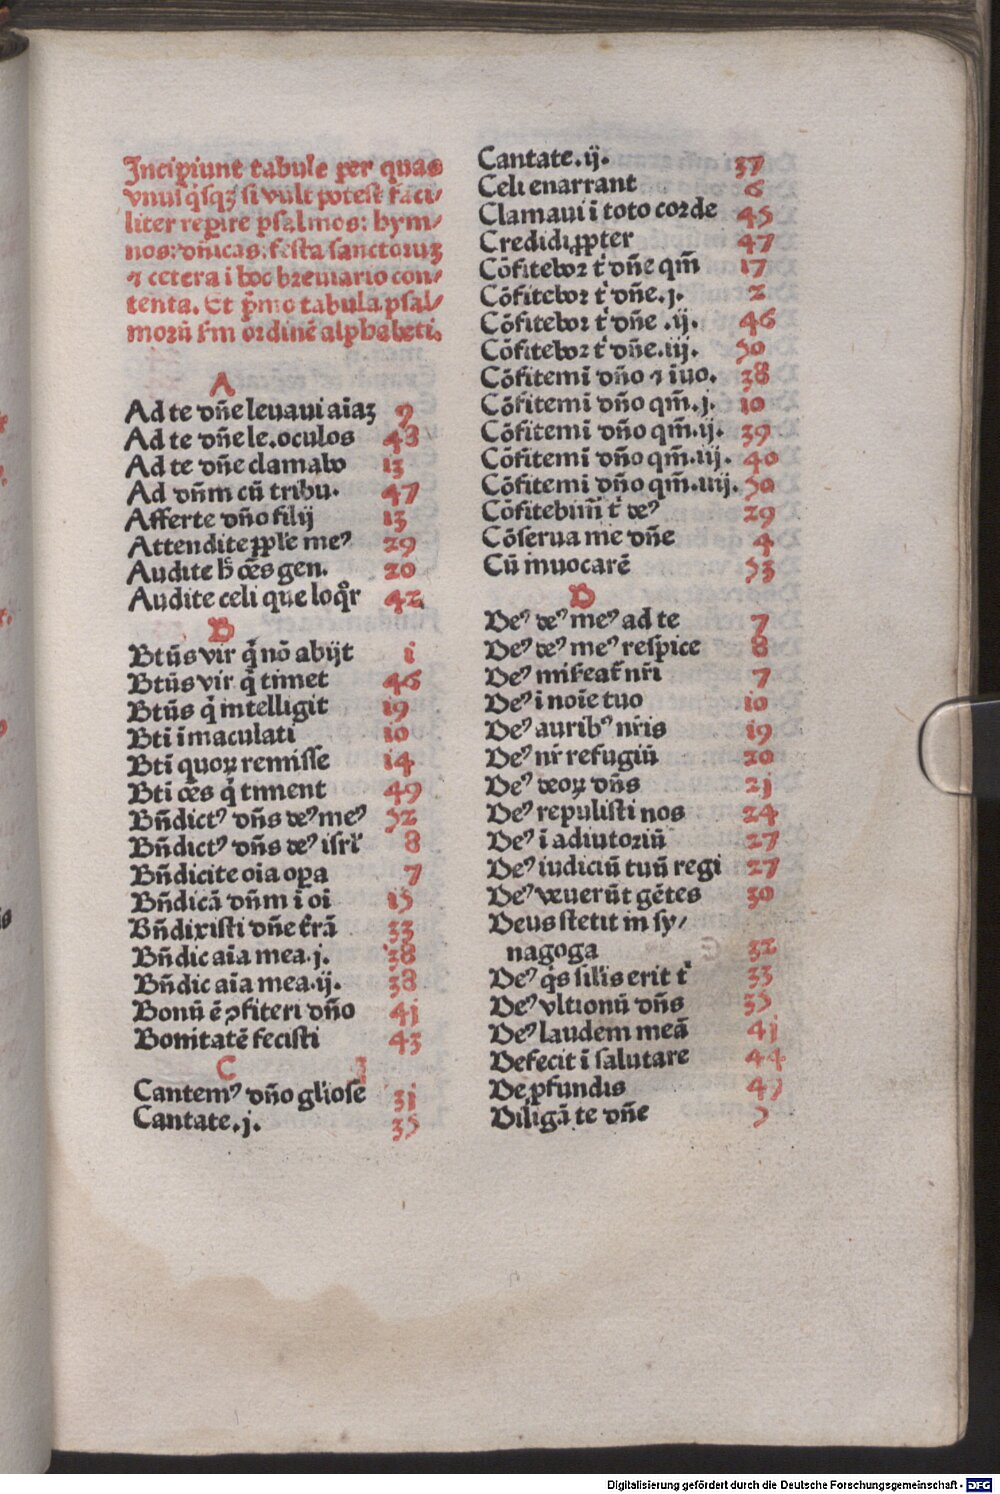 Incipiunt tabule per quas
vnusq̇sqꝫ si vult potest faci⸗
liter reꝑire psalmos: hym⸗
nos: dñicas. festa sanctoruꝫ
⁊ cetera ĩ hoc breuiario con⸗
tenta. Et p̃mo tabula psal⸗
morũ ẜm ordinẽ alphabeti.
A
Ad te dñe leuaui aĩaꝫ 9
Ad te dñe le.oculos 48
Ad te dñe clamabo 13
Ad dñm cũ tribu. 47
Afferte dño filij 13
Attendite pp̃le meꝰ 29
Audite h̃ oẽs gen. 20
Audite celi que loq̃r 42
B
Btũs vir q̃ nõ abijt i
Btũs vir q̃ timet 46
Btũs q̃ intelligit 19
Bti ĩmaculati 10
Btĩ quoꝝ remisse 14
Bti oẽs q̃ timent 49
Bñdictꝰ dñs deꝰ meꝰ 52
Bñdictꝰ dñs deꝰ isrł 8
Bñdicite oĩa oꝑa 7
Bñdicã dñm ĩ oĩ 15
Bñdixisti dñe t̃rã 33
Bñdic aĩa mea.j. 38
Bñdic aĩa mea.ij. 38
Bonũ ẽ ꝯfiteri dño 4j
Bonitatẽ fecisti 43
C
Cantemꝰ dño gliose 3j
Cantate.j. 35
Cantate.ij. 37
Celi enarrant 6
Clamaui ĩ toto corde 45
Credidi ꝓpter 47
Cõfitebor t̃ dñe qm̃ 17
Cõfitebor t̃ dñe.j. 2
Cõfitebor t̃ dñe .ij. 46
Cõfitebor t̃ dñe.iij. 50
Cõfitemĩ dño ⁊ ĩuo. 38
Cõfitemĩ dño qm̃.j. 10
Cõfitemĩ dño qm̃.ij. 39
Cõfitemĩ dño qm̃.iij. 40
Cõfitemĩ dño qm̃.iiij. 50
Cõfitebim̃ t̃ deꝰ 29
Cõserua me dñe 4
Cũ inuocarẽ 53
D
Deꝰ deꝰ meꝰ ad te 7
Deꝰ deꝰ meꝰ respice 8
Deꝰ misereat̃ nr̃i 7
Deꝰ ĩ noĩe tuo 10
Deꝰ auribꝰ nr̃is 19
Deꝰ nr̃ refugiũ 20
Deꝰ deoꝝ dñs 2j
Deꝰ repulisti nos 24
Deꝰ ĩ adiutoriũ 27
Deꝰ iudiciũ tuũ regi 27
Deꝰ venerũt gẽtes 30
Deus stetit in sy⸗
nagoga 32
Deꝰ q̇s sĩlis erit t̃ 33
Deꝰ vltionũ dñs 35
Deꝰ laudem meã 4j
Defecit ĩ salutare 44
De ꝓfundis 49
Diligã te dñe 5
Digitalisierung gefördert durch die Deutsche Forschungsgemeinschaft - DFG